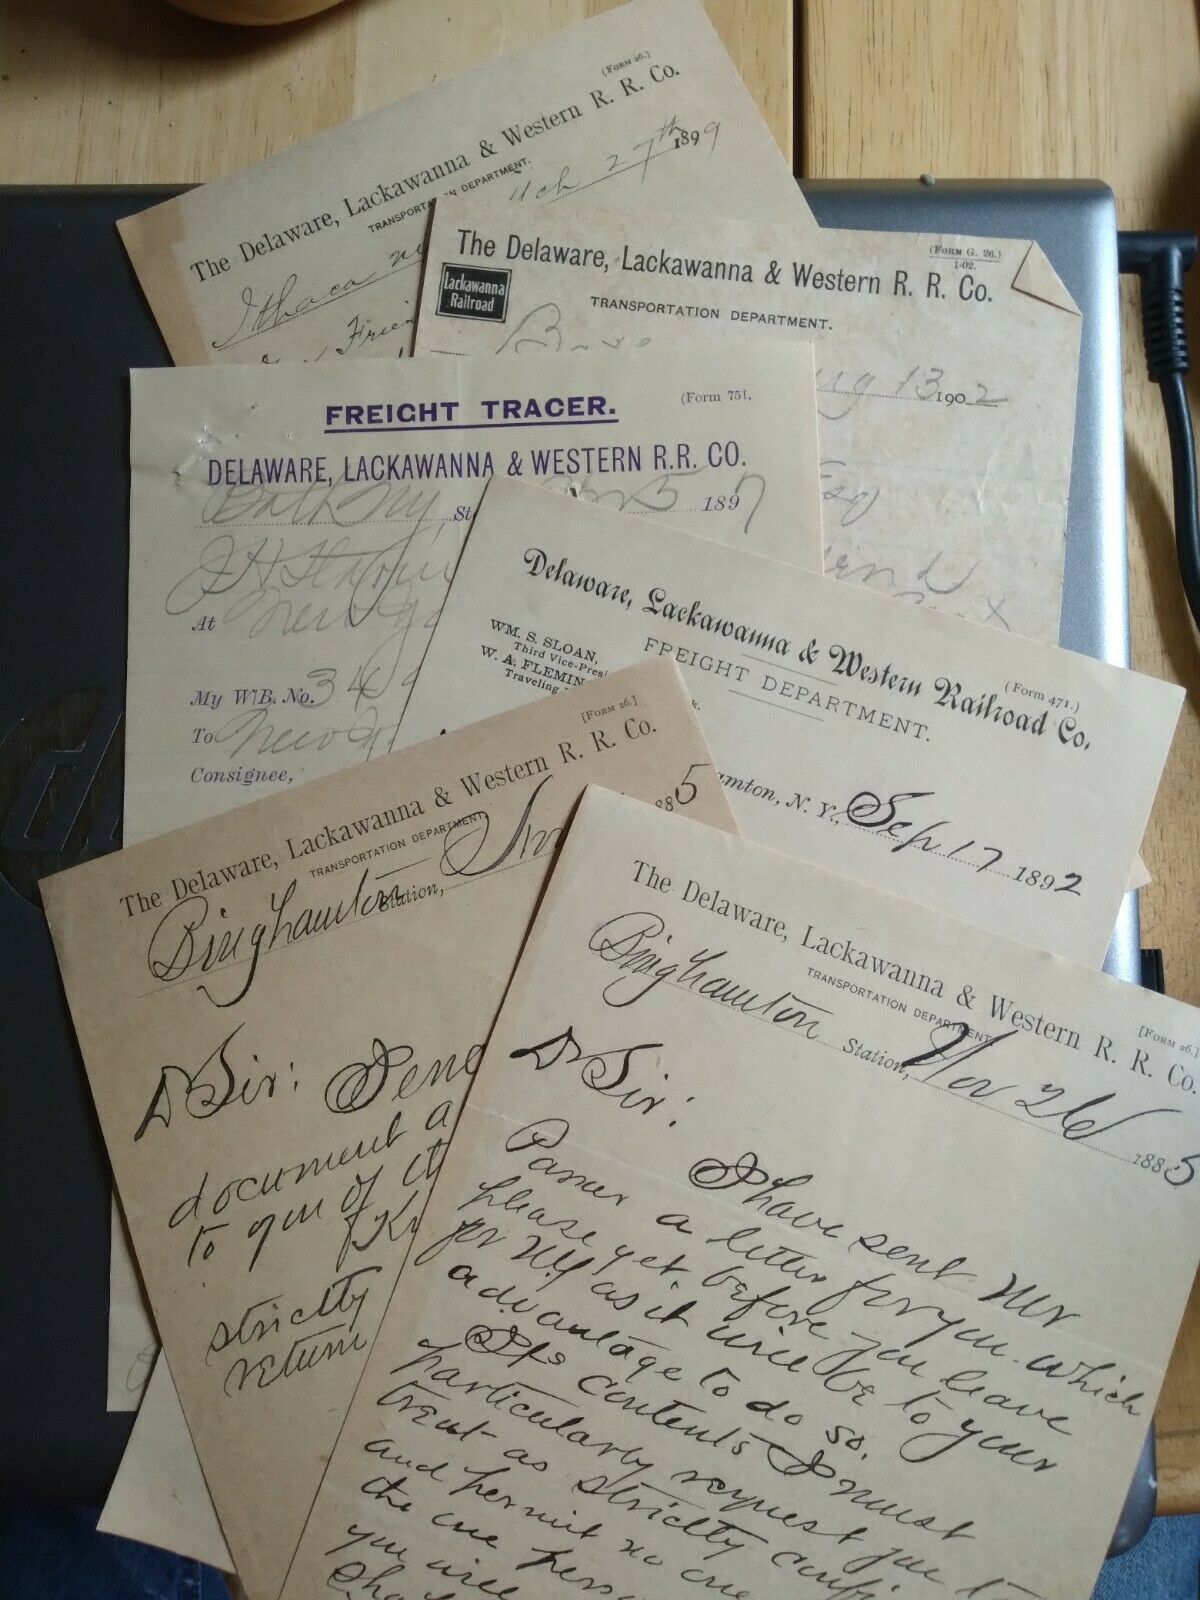 (Form 26.)
The Delaware, Lackawanna & Western R. R. Co.
TRANSPORTATION DEPARTMENT.
27th 1899
Ithaca
Frien
(Form G. 26.)
1-02.
The Delaware, Lackawanna & Western R. R. Co.
Lackawanna
Railroad
TRANSPORTATION DEPARTMENT.
ug 13 1902
Esq
(Form 751.
FREIGHT TRACER.
DELAWARE, LACKAWANNA & WESTERN R.R. CO.
Bath NY, St 5 1897
J H
At New Yo
My W/B. No. 349
To New Y
Consignee,
Delaware, Lackawanna & Western Railroad Co.
(Form 471.)
FREIGHT DEPARTMENT.
WM. S. SLOAN,
Third Vice-Presi
W. A. FLEMIN
Traveling
amton, N. Y., Sep 17 1892
[Form 26.]
The Delaware, Lackawanna & Western R. R. Co.
TRANSPORTATION DEPARTMENT.
Binghamton Station, 885
D Sir: Send
document a
to you of it
strictly
return
[Form 26.]
The Delaware, Lackawanna & Western R. R. Co.
TRANSPORTATION DEPARTMENT.
Binghamton Station, Nov 26 1885
D Sir:
I have sent Mr
a letter for you which
please get before you leave
for NY as it will be to your
advantage to do so.
Its contents I must
particularly request you to
treat as strictly confi
and permit no one
the one pers
you will
Sha